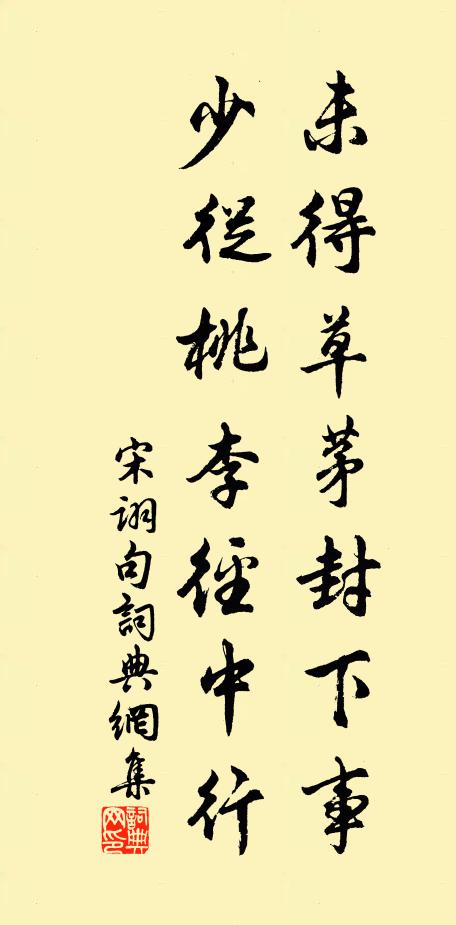 未得草茅封下事
少從桃李徑中行
宋詡句詞典網集
詞典網印